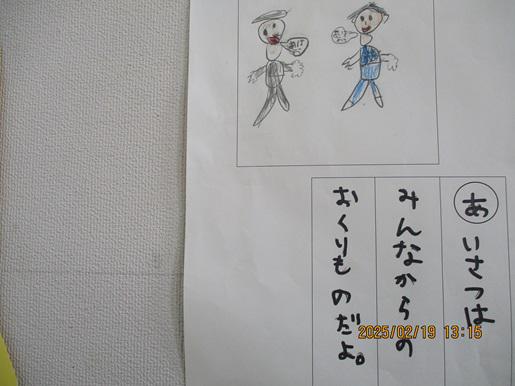 あいさつは
みんなからの
おくりものだよ。
2025/02/19 13:15